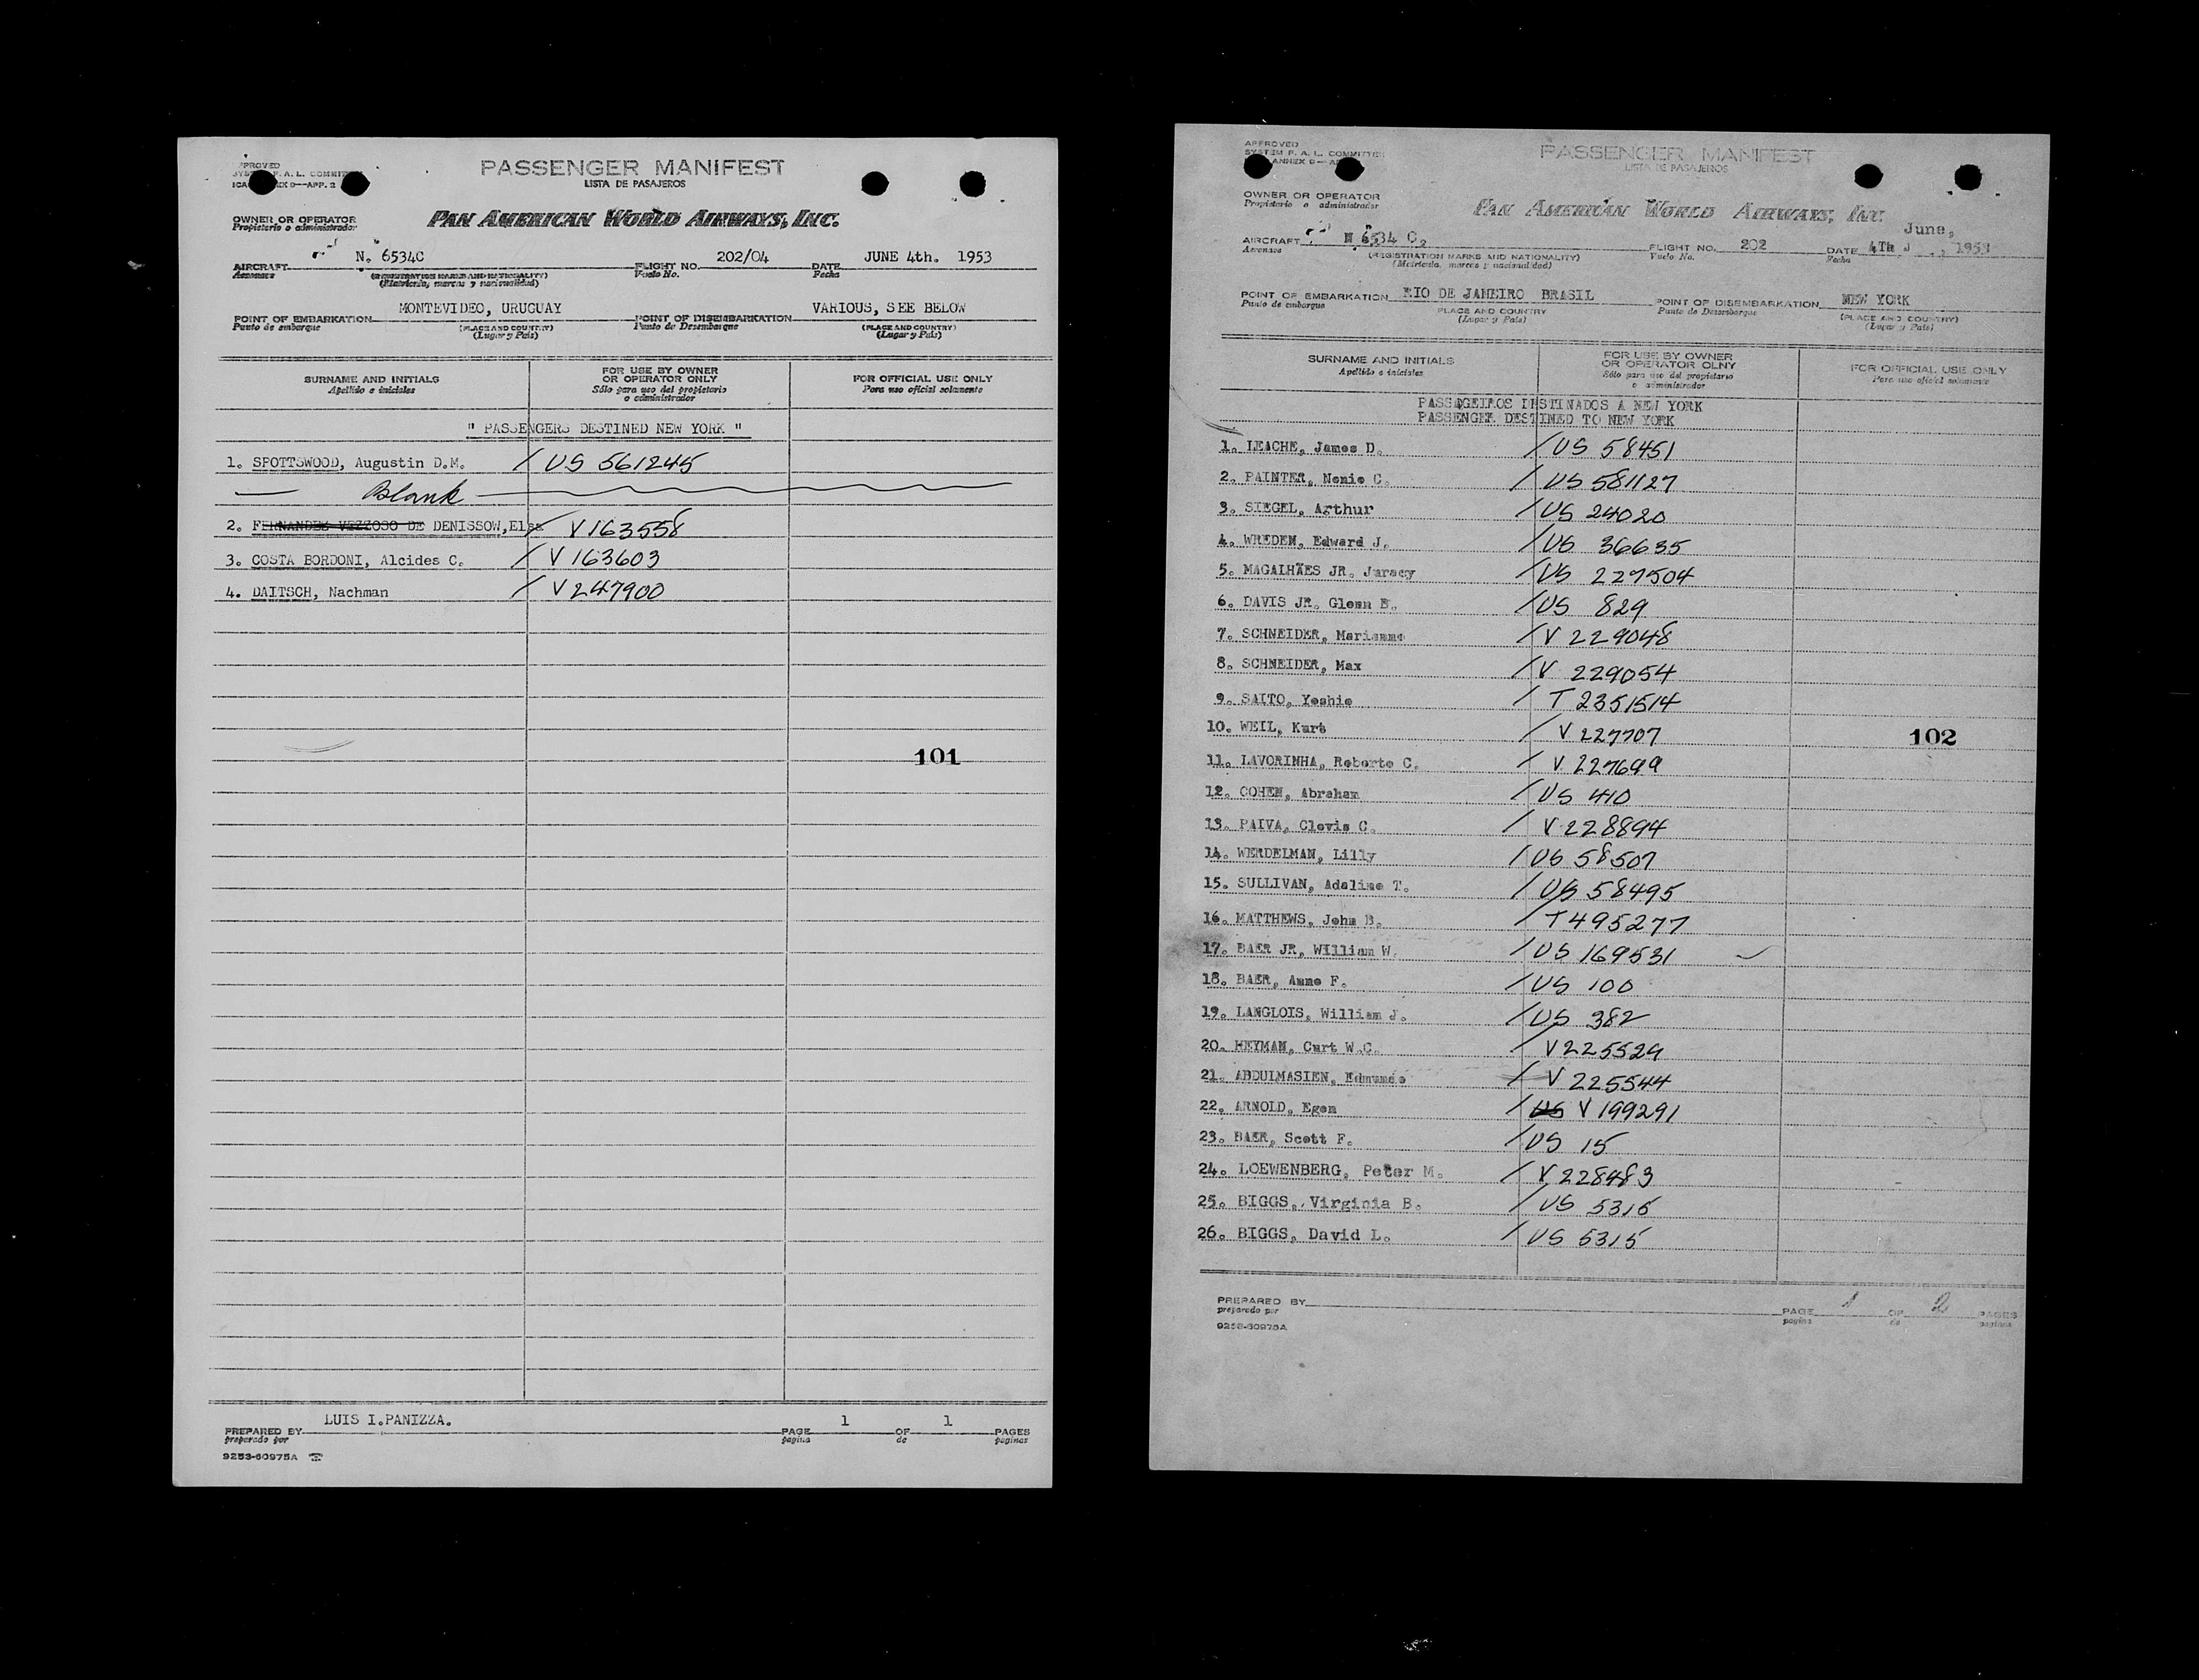 PASSENGER MANIFEST
LISTA DE PASAJEROS
OWNER OR OPERATOR
Propietario o administrador
PAN AMERICAN WORLD AIRWAYS, INC.
AIRCRAFT N. 6534C FLIGHT NO. 202/04 DATE JUNE 4th. 1953
Aeronave Vuelo No. Fecha
(REGISTRATION MARKS AND NATIONALITY)
(Matrícula, marcas y nacionalidad)
POINT OF EMBARKATION MONTEVIDEO, URUGUAY POINT OF DISEMBARKATION VARIOUS, SEE BELOW
Punto de embarque (PLACE AND COUNTRY) Punto de Desembarque (PLACE AND COUNTRY)
(Lugar y País) (Lugar y País)
SURNAME AND INITIALS FOR USE BY OWNER OR OPERATOR ONLY FOR OFFICIAL USE ONLY
Apellido e iniciales Sólo para uso del propietario o administrador Para uso oficial solamente
" PASSENGERS DESTINED NEW YORK "
1. SPOTTSWOOD, Augustin D.M. / US 561245
Blank
2. FERNANDEZ VEZZOSO DE DENISSOW, Elsa / V 163558
3. COSTA BORDONI, Alcides C. / V 163603
4. DAITSCH, Nachman / V 247900
101
PREPARED BY LUIS I.PANIZZA. PAGE 1 OF 1 PAGES
preparado por pagina de paginas
9253-60975A
APPROVED
SYSTEM F. A. L. COMMITTEE
PASSENGER MANIFEST
LISTA DE PASAJEROS
OWNER OR OPERATOR
Propietario o administrador
PAN AMERICAN WORLD AIRWAYS, INC.
June,
AIRCRAFT N 6534 C FLIGHT NO. 202 DATE 4Th J , 1953
Aeronave Vuelo No. Fecha
(REGISTRATION MARKS AND NATIONALITY)
(Matrícula, marcas y nacionalidad)
POINT OF EMBARKATION RIO DE JANEIRO BRASIL POINT OF DISEMBARKATION NEW YORK
Punto de embarque PLACE AND COUNTRY Punto de Desembarque (PLACE AND COUNTRY)
(Lugar y País) (Lugar y País)
SURNAME AND INITIALS FOR USE BY OWNER OR OPERATOR OLNY FOR OFFICIAL USE ONLY
Apellido e iniciales Sólo para uso del propietario o administrador Para uso oficial solamente
PASSAGEIROS DESTINADOS A NEW YORK
PASSENGER DESTINED TO NEW YORK
1. LEACHE, James D. / US 58451
2. PAINTER, Nenie C. / US 581127
3. SIEGEL, Arthur / US 24020
4. WREDEN, Edward J. / US 36635
5. MAGALHÃES JR. Juracy / US 227504
6. DAVIS JR. Glenn E. / US 829
7. SCHNEIDER, Marianne / V 229048
8. SCHNEIDER, Max / V 229054
9. SAITO, Yoshie / T 2351514
10. WEIL, Kurt / V 227707
11. LAVORINHA, Roberto C. / V 227699
12. COHEN, Abraham / US 410
13. PAIVA, Clovis C. / V 228894
14. WERDELMAN, Lilly / US 58507
15. SULLIVAN, Adaline T. / US 58495
16. MATTHEWS, John B. / T 495277
17. BAER JR, William W. / US 169531
18. BAER, Anne F. / US 100
19. LANGLOIS, William J. / US 382
20. HEYMAN, Curt W.C. / V 225529
21. ABDULMASIEN, Edmundo / V 225544
22. ARNOLD, Egon / US V 199291
23. BAER, Scott F. / US 15
24. LOEWENBERG, Peter M. / V 228483
25. BIGGS, Virginia B. / US 5316
26. BIGGS, David L. / US 5315
102
PREPARED BY PAGE 1 OF 2 PAGES
preparado por pagina de paginas
9253-60975A